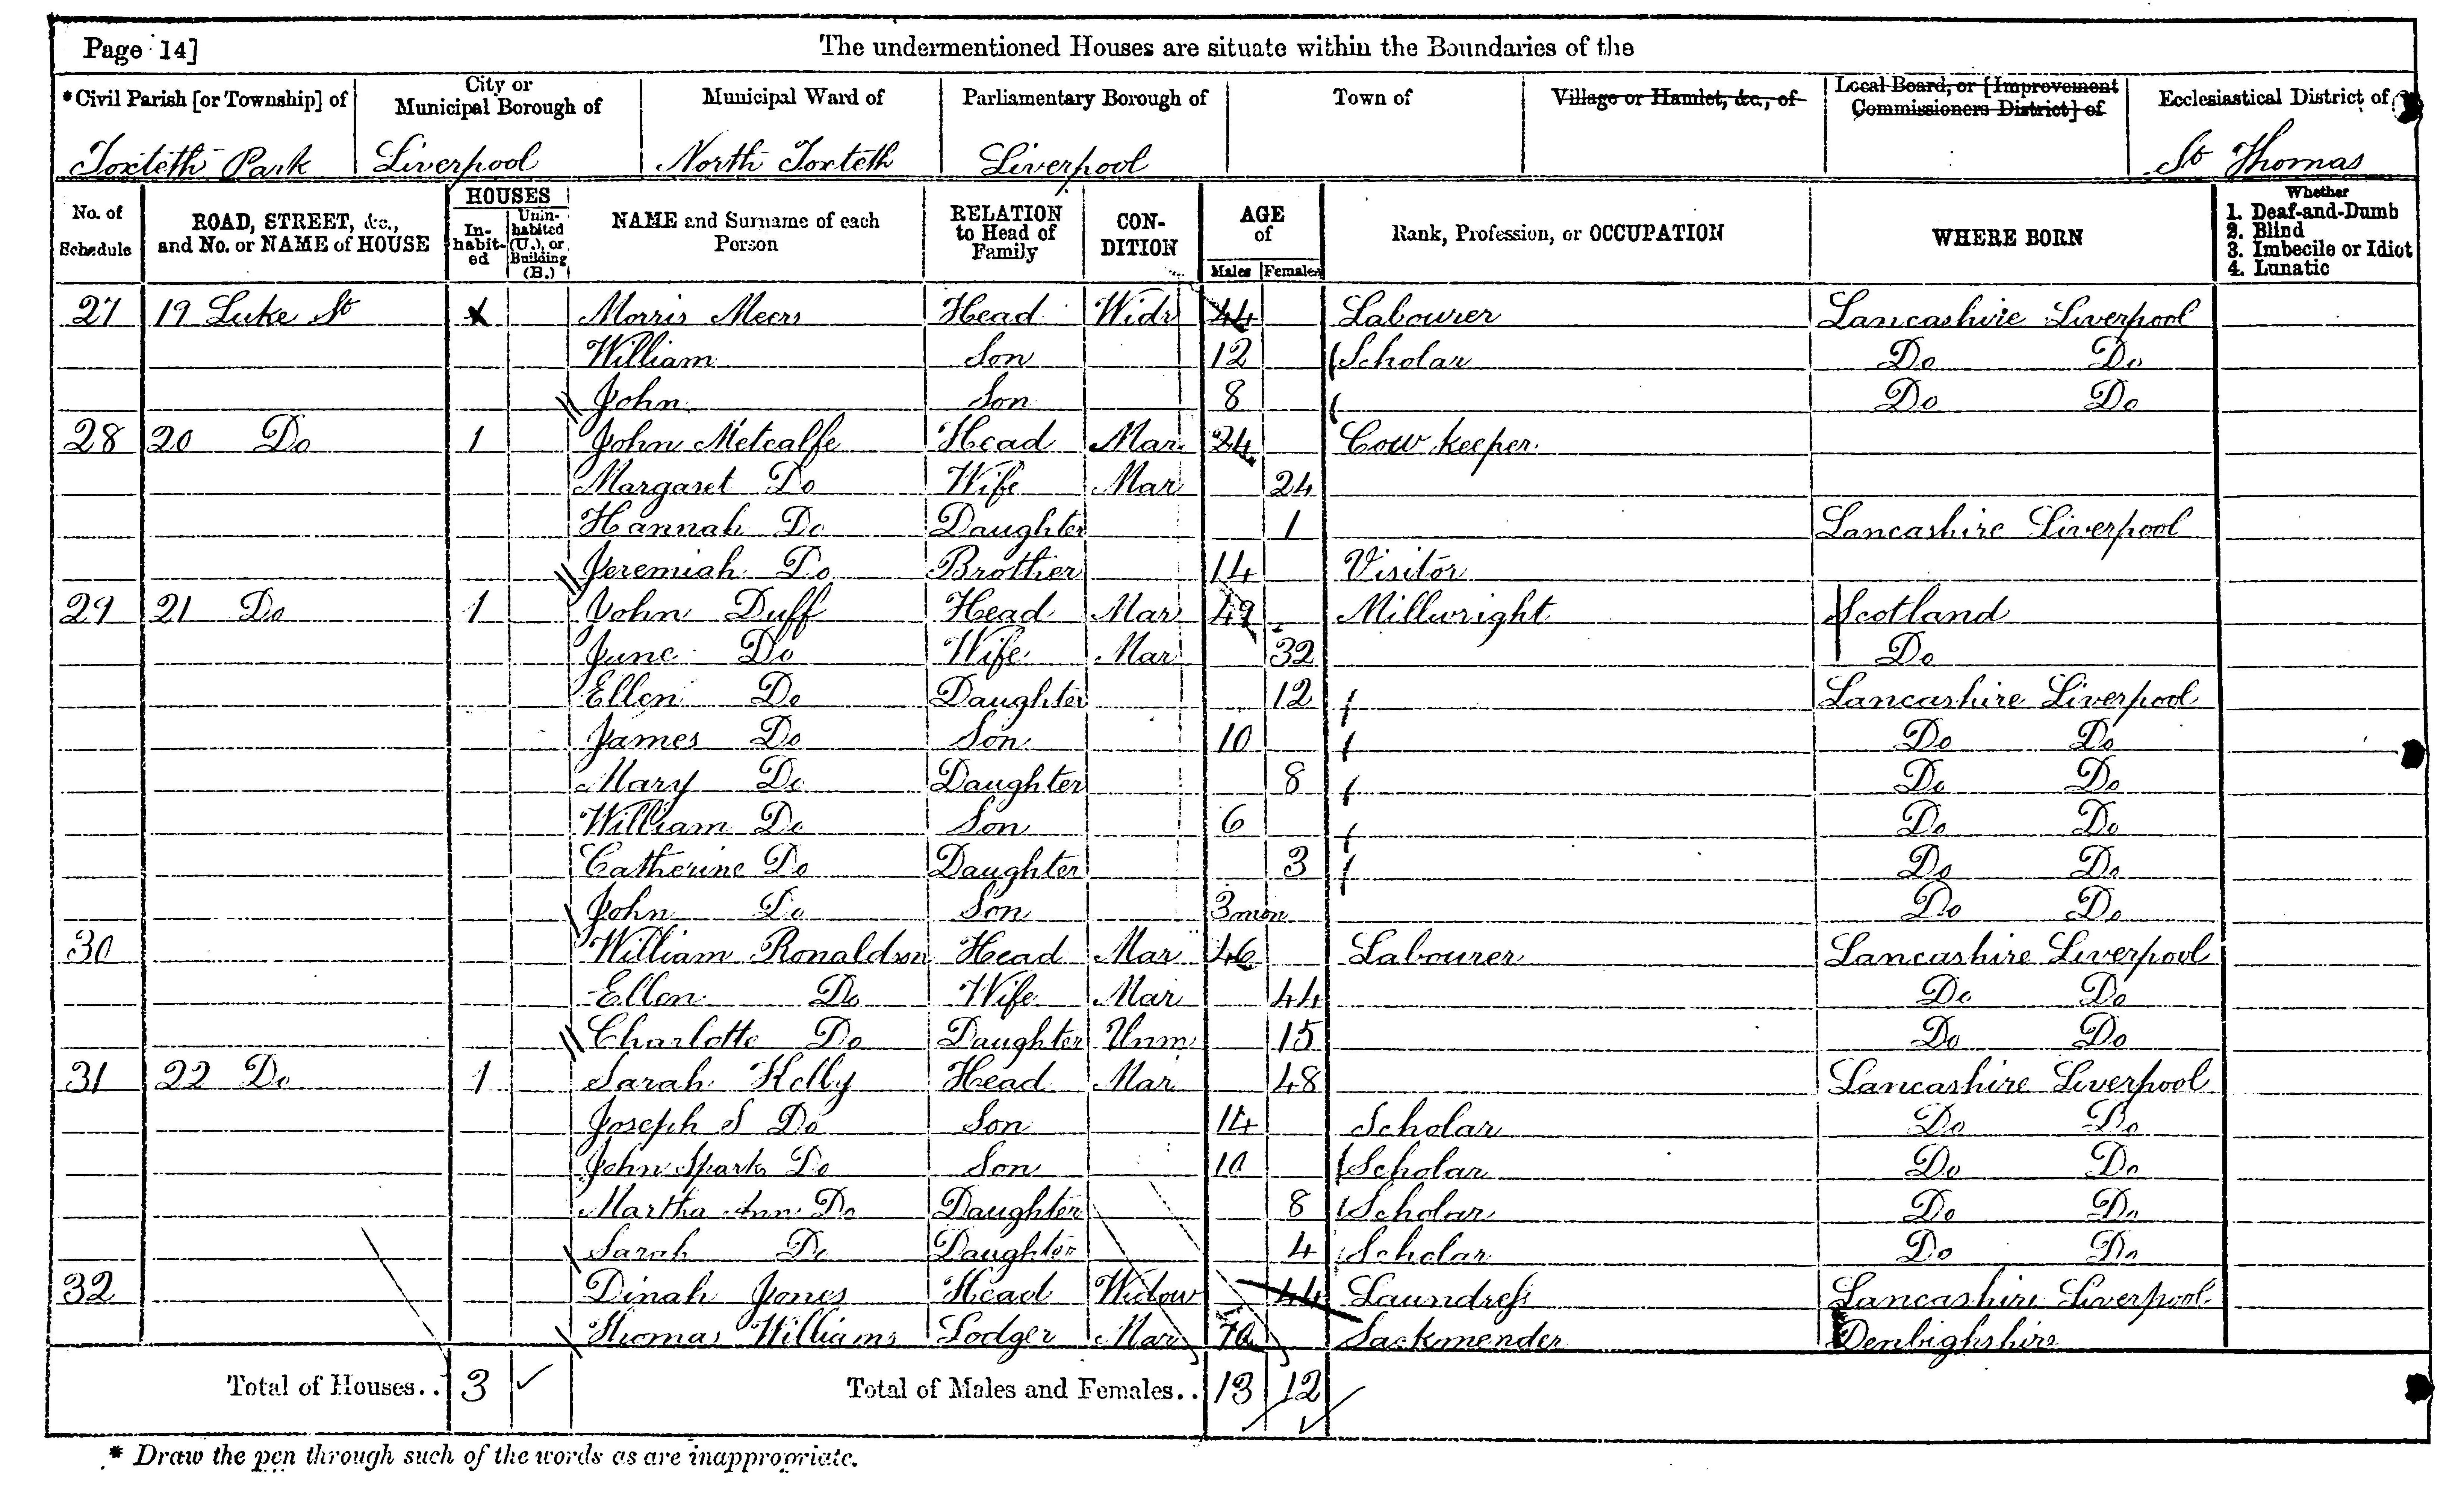 Page 14] The undermentioned Houses are situate within the Boundaries of the
*Civil Parish [or Township] of City or Municipal Borough of Municipal Ward of Parliamentary Borough of Town of Village or Hamlet, &c., of Local Board, or [Improvement Commissioners District] of Ecclesiastical District of
Toxteth Park Liverpool North Toxteth Liverpool St Thomas
No. of Schedule ROAD, STREET, &c., and No. or NAME of HOUSE HOUSES Inhabited Uninhabited (U.), or Building (B.) NAME and Surname of each Person RELATION to Head of Family CONDITION AGE of Males Females Rank, Profession, or OCCUPATION WHERE BORN Whether 1. Deaf-and-Dumb 2. Blind 3. Imbecile or Idiot 4. Lunatic
27 19 Luke St Morris Meers Head Widr 44 Labourer Lancashire Liverpool
William Son 12 Scholar Do Do
John Son 8 Do Do
28 20 Do 1 John Metcalfe Head Mar 24 Cow keeper
Margaret Do Wife Mar 24
Hannah Do Daughter 1 Lancashire Liverpool
Jeremiah Do Brother 14 Visitor
29 21 Do 1 John Duff Head Mar 49 Millwright Scotland
Jane Do Wife Mar 32 Do
Ellen Do Daughter 12 Lancashire Liverpool
James Do Son 10 Do Do
Mary Do Daughter 8 Do Do
William Do Son 6 Do Do
Catherine Do Daughter 3 Do Do
John Do Son 3 mon Do Do
30 William Ronaldson Head Mar 46 Labourer Lancashire Liverpool
Ellen Do Wife Mar 44 Do Do
Charlotte Do Daughter Unm 15 Do Do
31 22 Do 1 Sarah Kelly Head Mar 48 Lancashire Liverpool
Joseph S Do Son 14 Scholar Do Do
John Spark Do Son 10 Scholar Do Do
Martha Ann Do Daughter 8 Scholar Do Do
Sarah Do Daughter 4 Scholar Do Do
32 Dinah Jones Head Widow 44 Laundress Lancashire Liverpool
Thomas Williams Lodger Mar 70 Sackmender Denbighshire
Total of Houses.. 3 Total of Males and Females.. 13 12
* Draw the pen through such of the words as are inappropriate.